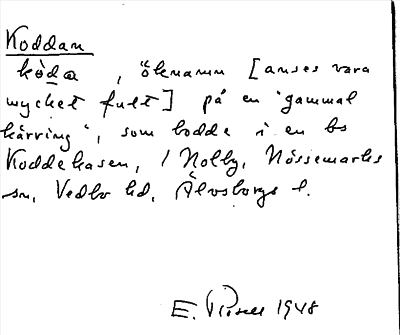 Koddan
kòda, öknamn [anses vara
mycket fult] på en "gammal
kärring", som bodde i en bs
Koddekasen, i Nolby, Nössemarks
sn, Vedbo hd, Älvsborgs l.
E. 1948